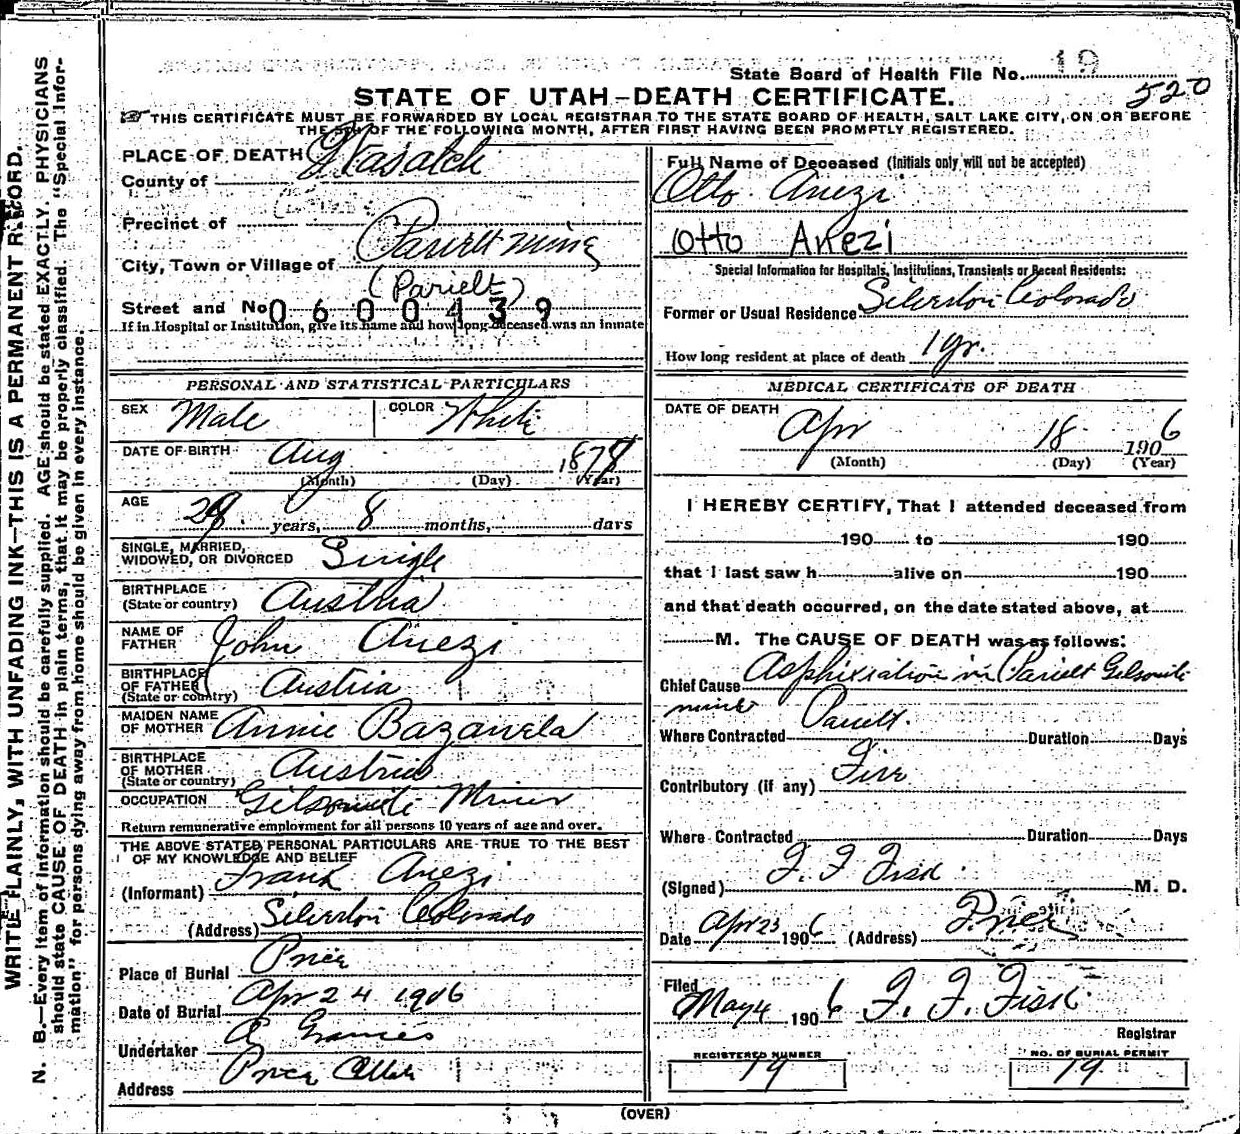 State Board of Health File No. 19
520
STATE OF UTAH-DEATH CERTIFICATE.
THIS CERTIFICATE MUST BE FORWARDED BY LOCAL REGISTRAR TO THE STATE BOARD OF HEALTH, SALT LAKE CITY, ON OR BEFORE
THE 5TH OF THE FOLLOWING MONTH, AFTER FIRST HAVING BEEN PROMPTLY REGISTERED.
WRITE PLAINLY, WITH UNFADING INK—THIS IS A PERMANENT RECORD.
N. B.—Every item of information should be carefully supplied. AGE should be stated EXACTLY. PHYSICIANS
should state CAUSE OF DEATH in plain terms, that it may be properly classified. The "Special Infor-
mation" for persons dying away from home should be given in every instance.
PLACE OF DEATH
County of Wasatch
Precinct of
City, Town or Village of Pariett mine
(Parielt)
Street and No.
0600439
If in Hospital or Institution, give its name and how long deceased was an inmate
PERSONAL AND STATISTICAL PARTICULARS
SEX Male COLOR White
DATE OF BIRTH Aug 1878
(Month) (Day) (Year)
AGE years, 8 months, days
SINGLE, MARRIED,
WIDOWED, OR DIVORCED Single
BIRTHPLACE
(State or country) Austria
NAME OF
FATHER John Anezi
BIRTHPLACE
OF FATHER
(State or country) Austria
MAIDEN NAME
OF MOTHER Annie Bazanela
BIRTHPLACE
OF MOTHER
(State or country) Austria
OCCUPATION Gilsonite Miner
Return remunerative employment for all persons 10 years of age and over.
THE ABOVE STATED PERSONAL PARTICULARS ARE TRUE TO THE BEST
OF MY KNOWLEDGE AND BELIEF
(Informant) Frank Anezi
(Address) Silverton Colorado
Place of Burial Price
Date of Burial Apr 24 1906
Undertaker
Address Price Utah
Full Name of Deceased (Initials only will not be accepted)
Otto Anezi
Otto Anezi
Special Information for Hospitals, Institutions, Transients or Recent Residents:
Former or Usual Residence Silverton Colorado
How long resident at place of death 1 yr.
MEDICAL CERTIFICATE OF DEATH
DATE OF DEATH
Apr 18 1906
(Month) (Day) (Year)
I HEREBY CERTIFY, That I attended deceased from
190 to 190
that I last saw h alive on 190
and that death occurred, on the date stated above, at
M. The CAUSE OF DEATH was as follows:
Chief Cause Asphixiation in Pariett Gilsonite
mine
Where Contracted Pariett. Duration Days
Contributory (if any) Fire
Where Contracted Duration Days
(Signed) F. F. Fisk M. D.
Date Apr 23 1906 (Address) Price
Filed
May 4 1906 F. F. Fisk
Registrar
REGISTERED NUMBER
19
NO. OF BURIAL PERMIT
19
(OVER)